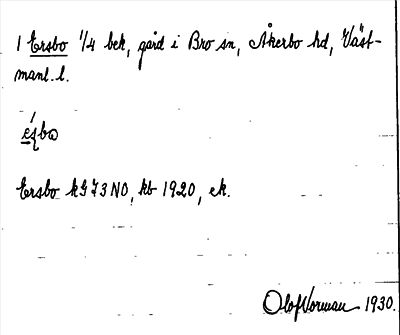 1 Ersbo 1/4 bek, gård i Bro sn, Åkerbo hd, Väst-
manl. l.
Ersbo kG73NO, kb 1920, ek.
Olof Norman 1930.